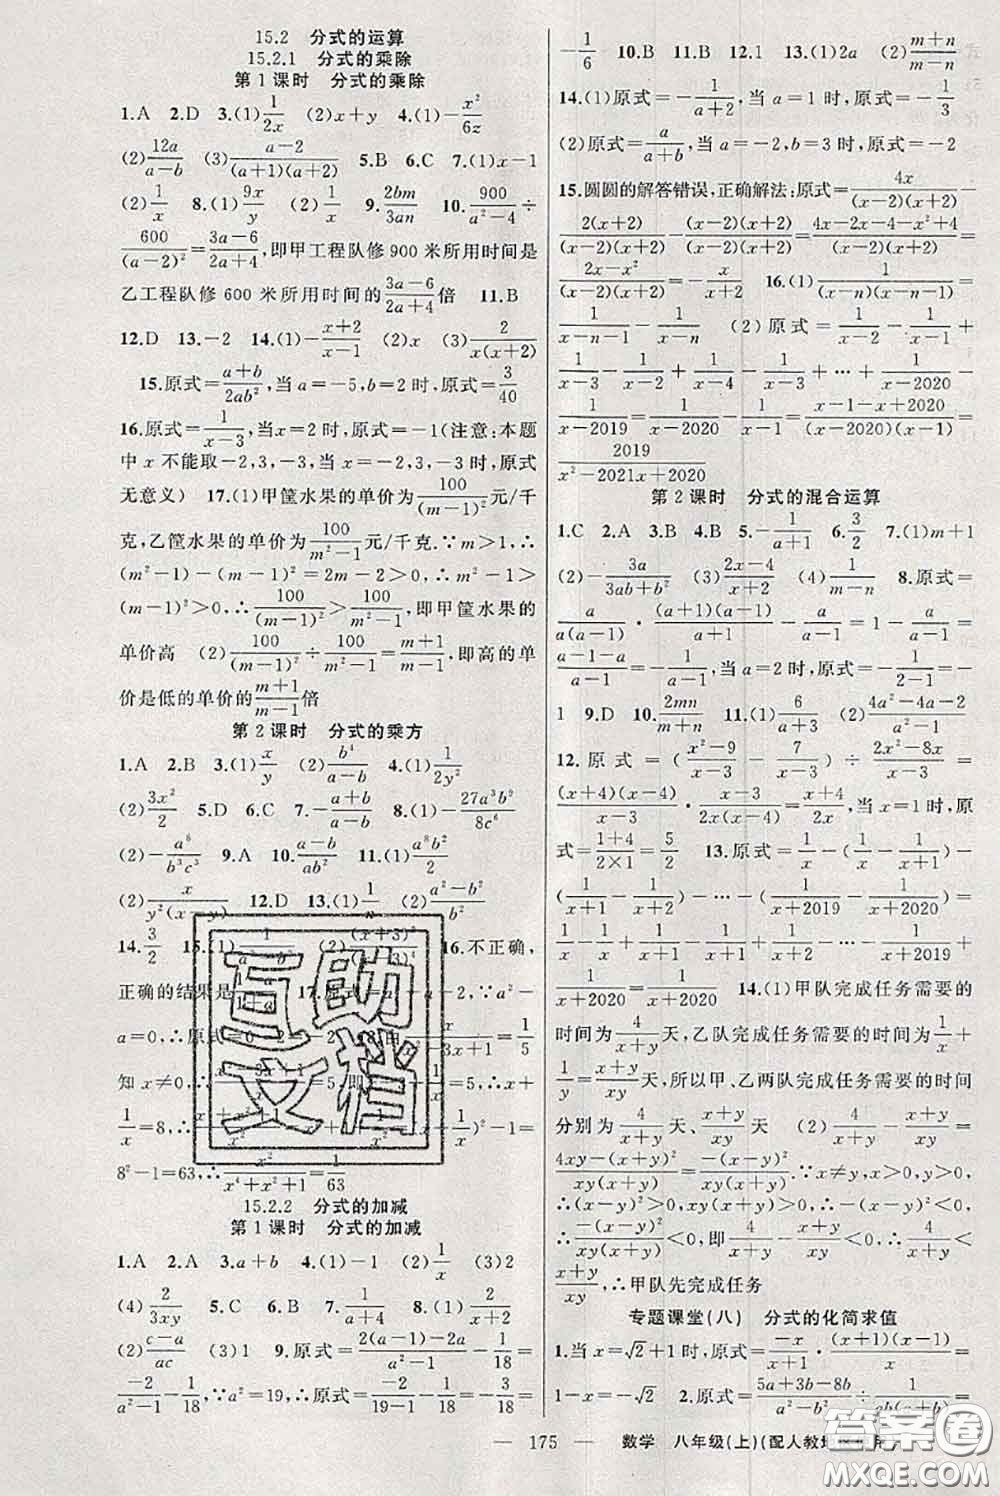 15.2 分式的运算
15.2.1 分式的乘除
第1课时 分式的乘除
1.A 2.D 3.(1)1/(2x) (2)x+y 4.(1)-x²/(6z)
(2)12a/(a-b) (3)(a-2)/((a+1)(a+2)) 5.B 6.C 7.(1)x-1
(2)1/x 8.(1)9x/y (2)1/x 9.2bm/(3an) 10.900/(a²-4)÷
600/(a-2)²=(3a-6)/(2a+4),即甲工程队修900米所用时间是
乙工程队修600米所用时间的(3a-6)/(2a+4)倍 11.B
12.D 13.-2 14.(1)-(x+2)/(x-1) (2)x (3)2/(x(x+2))
15.原式=(a+b)/(2ab²),当a=-5,b=2时,原式=3/40
16.原式=1/(x-3),当x=2时,原式=-1(注意:本题
中x不能取-2,3,-3,当x=-2,3,-3时,原式
无意义) 17.(1)甲筐水果的单价为100/(m-1)²元/千
克,乙筐水果的单价为100/(m²-1)元/千克.∵m>1,∴
(m²-1)-(m-1)²=2m-2>0,∴m²-1>
(m-1)²>0,∴100/(m-1)²>100/(m²-1),即甲筐水果的
单价高 (2)100/(m-1)²÷100/(m²-1)=(m+1)/(m-1),即高的单
价是低的单价的(m+1)/(m-1)倍
第2课时 分式的乘方
1.A 2.B 3.(1)x/y (2)b⁴/(a-b) 4.(1)1/(2y²)
(2)3x²/2 5.D 6.C 7.-(a+b)/(a-b) 8.(1)-27a³b²/(8c⁶)
(2)-a⁸/(b³c³) 9.A 10.(a-b)/(ab²) 11.(1)a⁸b²/2
(2)x/(y²(x-y)) 12.D 13.(1)1/n (2)(a²-b²)/b²
14.3/2 15.(1) (2) 16.不正确,
正确的结果是 17.原式= -2,∵a²-
a=0,∴原式=0-2=-2 18.由 3x+1=1/5
知x≠0,∴ =5,即 =5,∴x+
1/x=8,∴ )²-1=
8²-1=63,∴x²/(x⁴+x²+1)=1/63
15.2.2 分式的加减
第1课时 分式的加减
1.A 2.A 3.a+b 4.(1)-1 (2)1/x (3)2
(4)2/(3xy) 5.C 6.B 7.1/(a+4) 8.(1)2/(x+2)
(2)(c-a)/(ac) (3)1 9.原式=(2(a-1)-2a)/(a²-1)-1/18=
-2/(a²-1)-1/18,∵a²=19,∴原式=-2/(19-1)-1/18=-3/18=
-1/6 10.B 11.B 12.1 13.(1)2a (2)(m+n)/(m-n)
14.(1)原式=-1/(a+1),当a=1时,原式=-1/3
(2)原式=a/(a+b),当a=-2,b=3时,原式=-2
15.圆圆的解答错误,正确解法:原式=4x/((x-2)(x+2))-
2(x+2)/((x-2)(x+2))-(x-2)(x+2)/((x-2)(x+2))=(4x-2x-4-x²+4)/((x-2)(x+2))=
(2x-x²)/((x-2)(x+2))=-x/(x+2) 16.(1)1/((x-n)(x-n-1))=
1/(x-n-1)-1/(x-n) (2)原式=1/(x-2)-1/(x-1)+
1/(x-3)-1/(x-2)+1/(x-4)-1/(x-3)+…+1/(x-2020)-
1/(x-2019)=1/(x-2020)-1/(x-1)=(x-1-x+2020)/((x-2020)(x-1))=
2019/(x²-2021x+2020)
第2课时 分式的混合运算
1.C 2.A 3.B 4.B 5.-1/(a+1) 6.3/2 7.(1)m+1
(2)-3a/(3ab+b²) (3)(2x-4)/(x+2) (4)1/(m-n) 8.原式=
a/(a(a-1))·(a+1)(a-1)/(a+1)-a/(a-1)=1-a/(a-1)=
(a-1-a)/(a-1)=-1/(a-1),当a=2时,原式=-1/(2-1)=-
1 9.D 10.2mn/(m+n) 11.(1)6/(a+3) (2)(4a²-4a-2)/(a²-a)
12.原式=((x²-9)/(x-3)-7/(x-3))÷(2x²-8x)/(x-3)=
(x+4)(x-4)/(x-3)·(x-3)/(2x(x-4))=(x+4)/(2x),当x=1时,原
式=(1+4)/(2×1)=5/2 13.原式=1/x-(1/x-1/(x+1))-
(1/(x+1)-1/(x+2))-…-(1/(x+2019)-1/(x+2020))=
1/x-1/x+1/(x+1)-1/(x+1)+1/(x+2)-…-1/(x+2019)+
1/(x+2020)=1/(x+2020) 14.(1)甲队完成任务需要的
时间为4/(x+y)天,乙队完成任务需要的时间为1/x+
1/y=(x+y)/(xy)天,所以甲、乙两队完成任务需要的时间
分别为4/(x+y)天、(x+y)/(xy)天 (2)4/(x+y)-(x+y)/(xy)=
(4xy-(x+y)²)/(xy(x+y))=-(x-y)²/(xy(x+y)).∵x≠y,x>0,y>0,
∴(x-y)²>0,xy(x+y)>0,∴-(x-y)²<0,
∴-(x-y)²/(xy(x+y))<0,即4/(x+y)-(x+y)/(xy)<0,∴4/(x+y)<
(x+y)/(xy),∴甲队先完成任务
专题课堂(八) 分式的化简求值
1.当x=√2+1时,原式=-x/(x+1)·(x+1)(x-1)/x=
1-x=-√2 2.原式=(5a+3b-8b)/(a²-b²)÷1/(ab(a+b))=
— 175 — 数学 八年级(上)(配人教地区使用)
互助
文档
答案圈
MXQE.COM